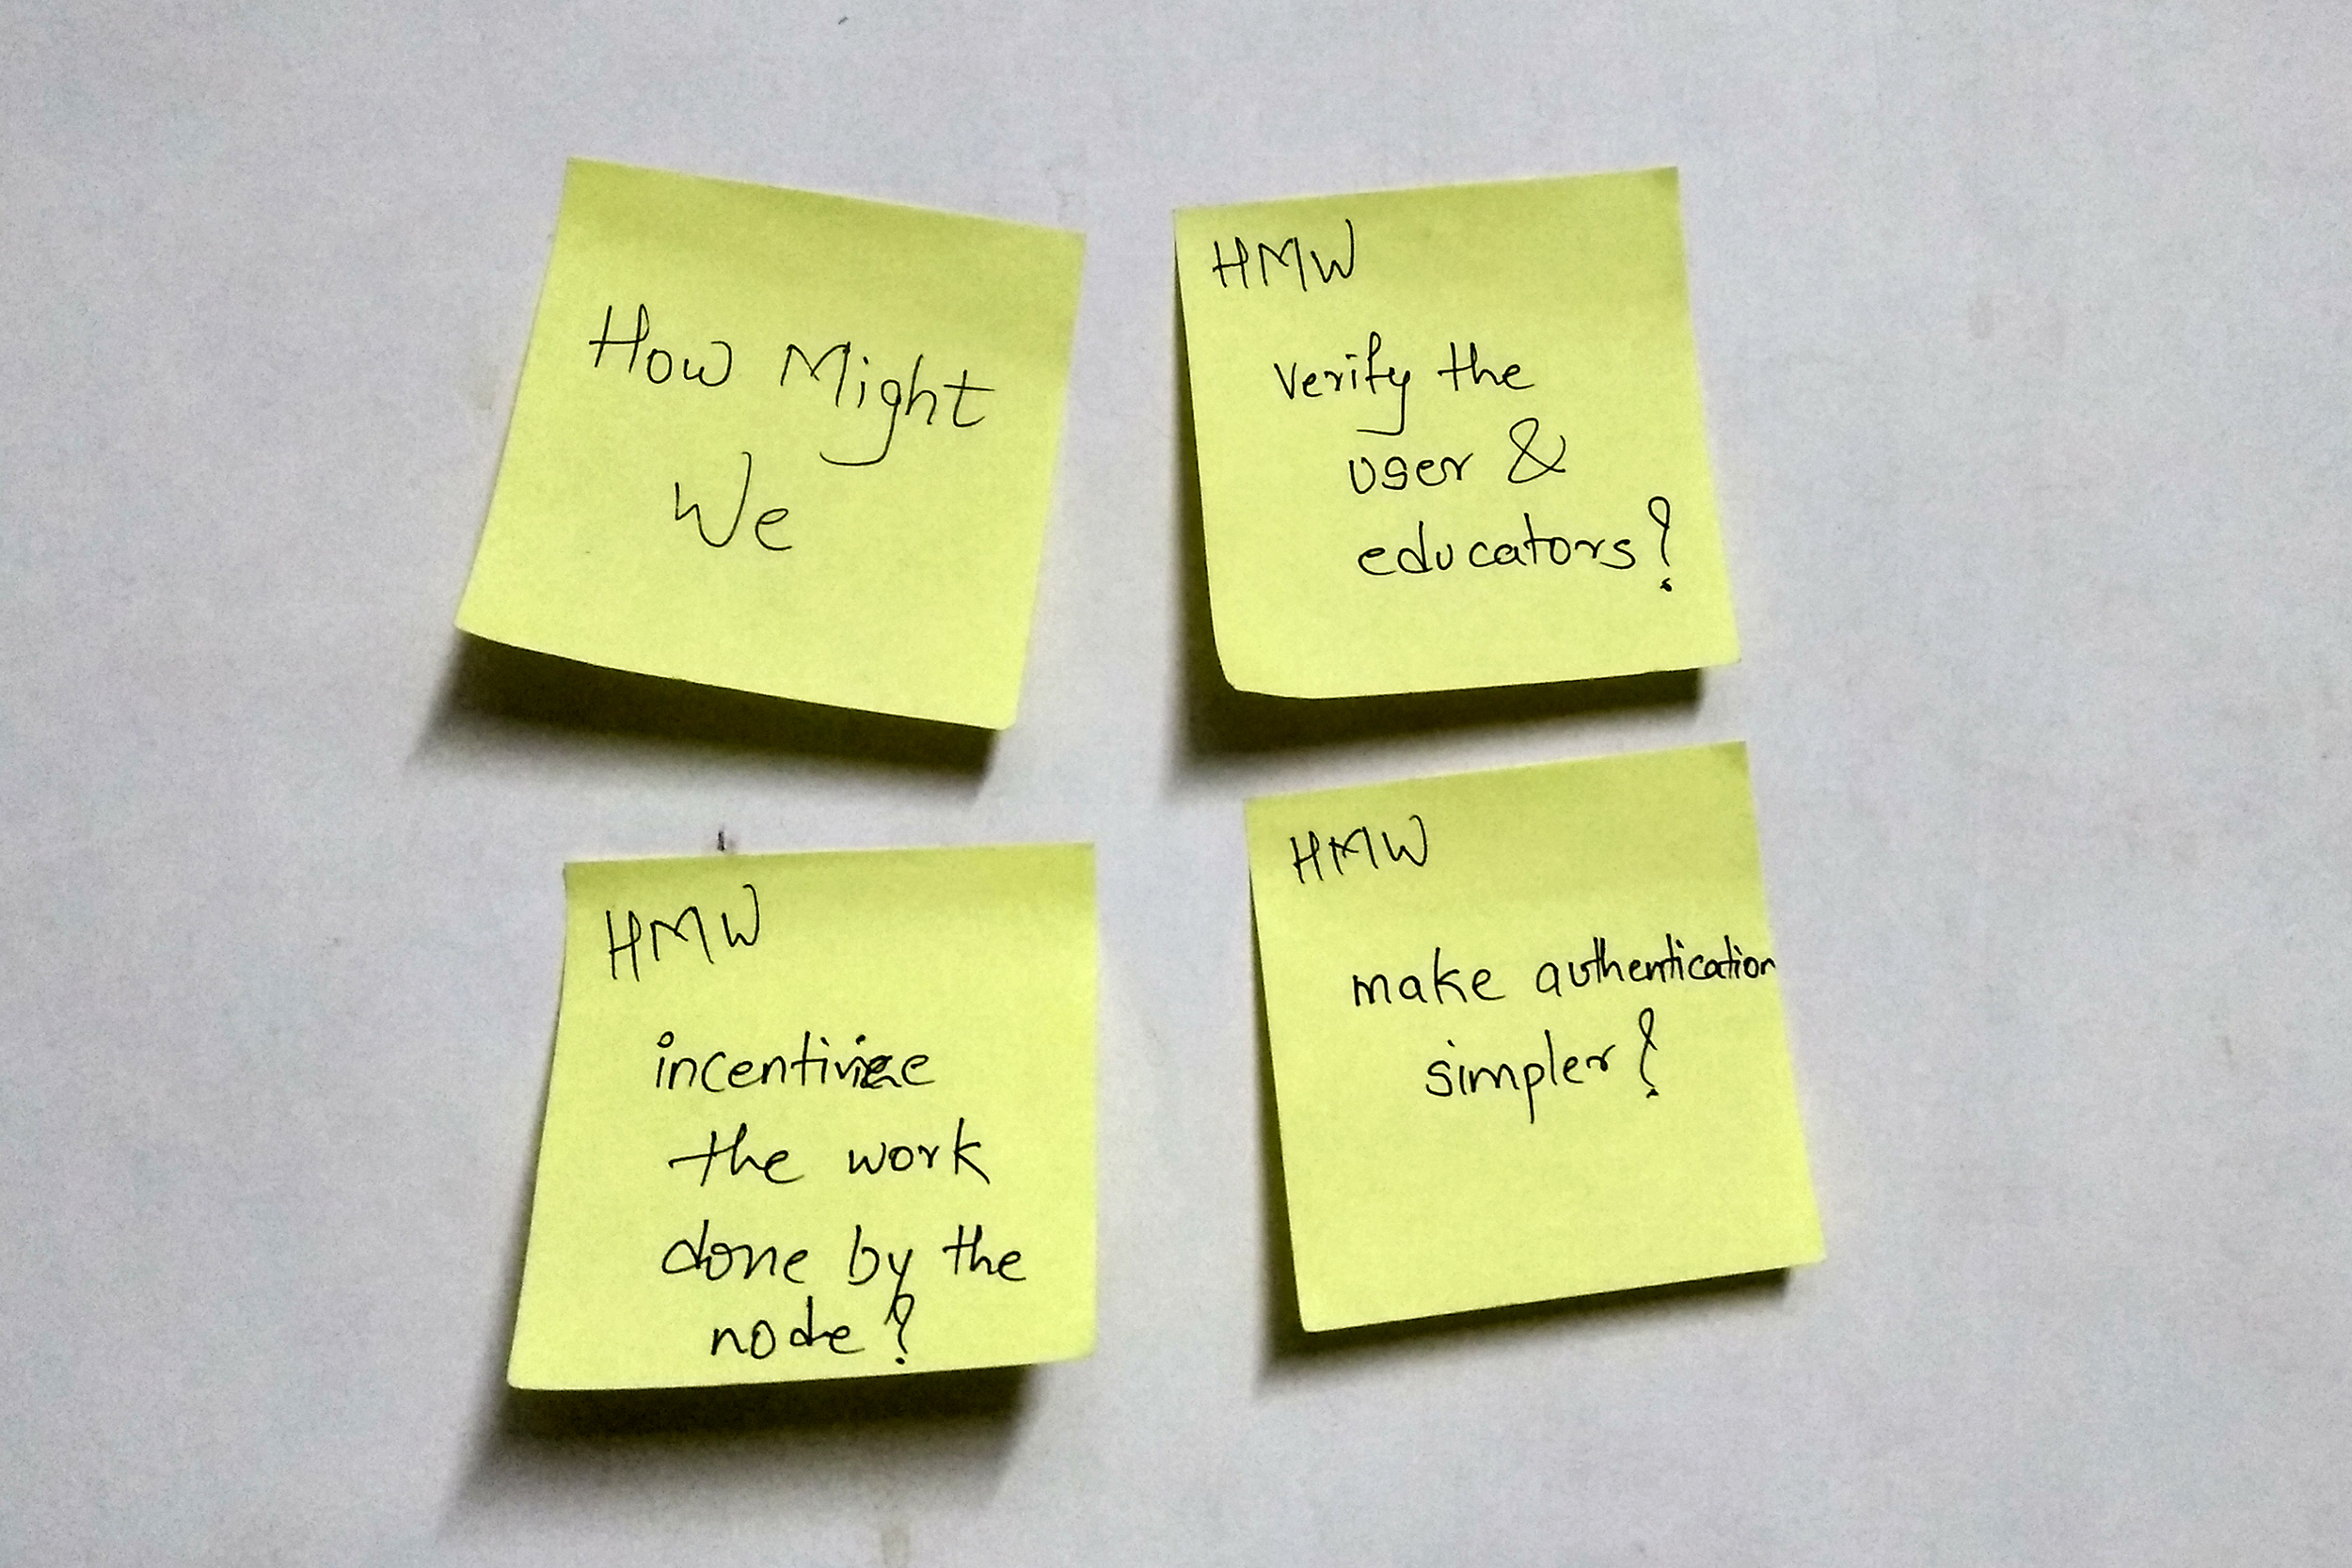 How Might
We
HMW
verify the
user &
educators?
HMW
incentivize
the work
done by the
node?
HMW
make authentication
simpler?